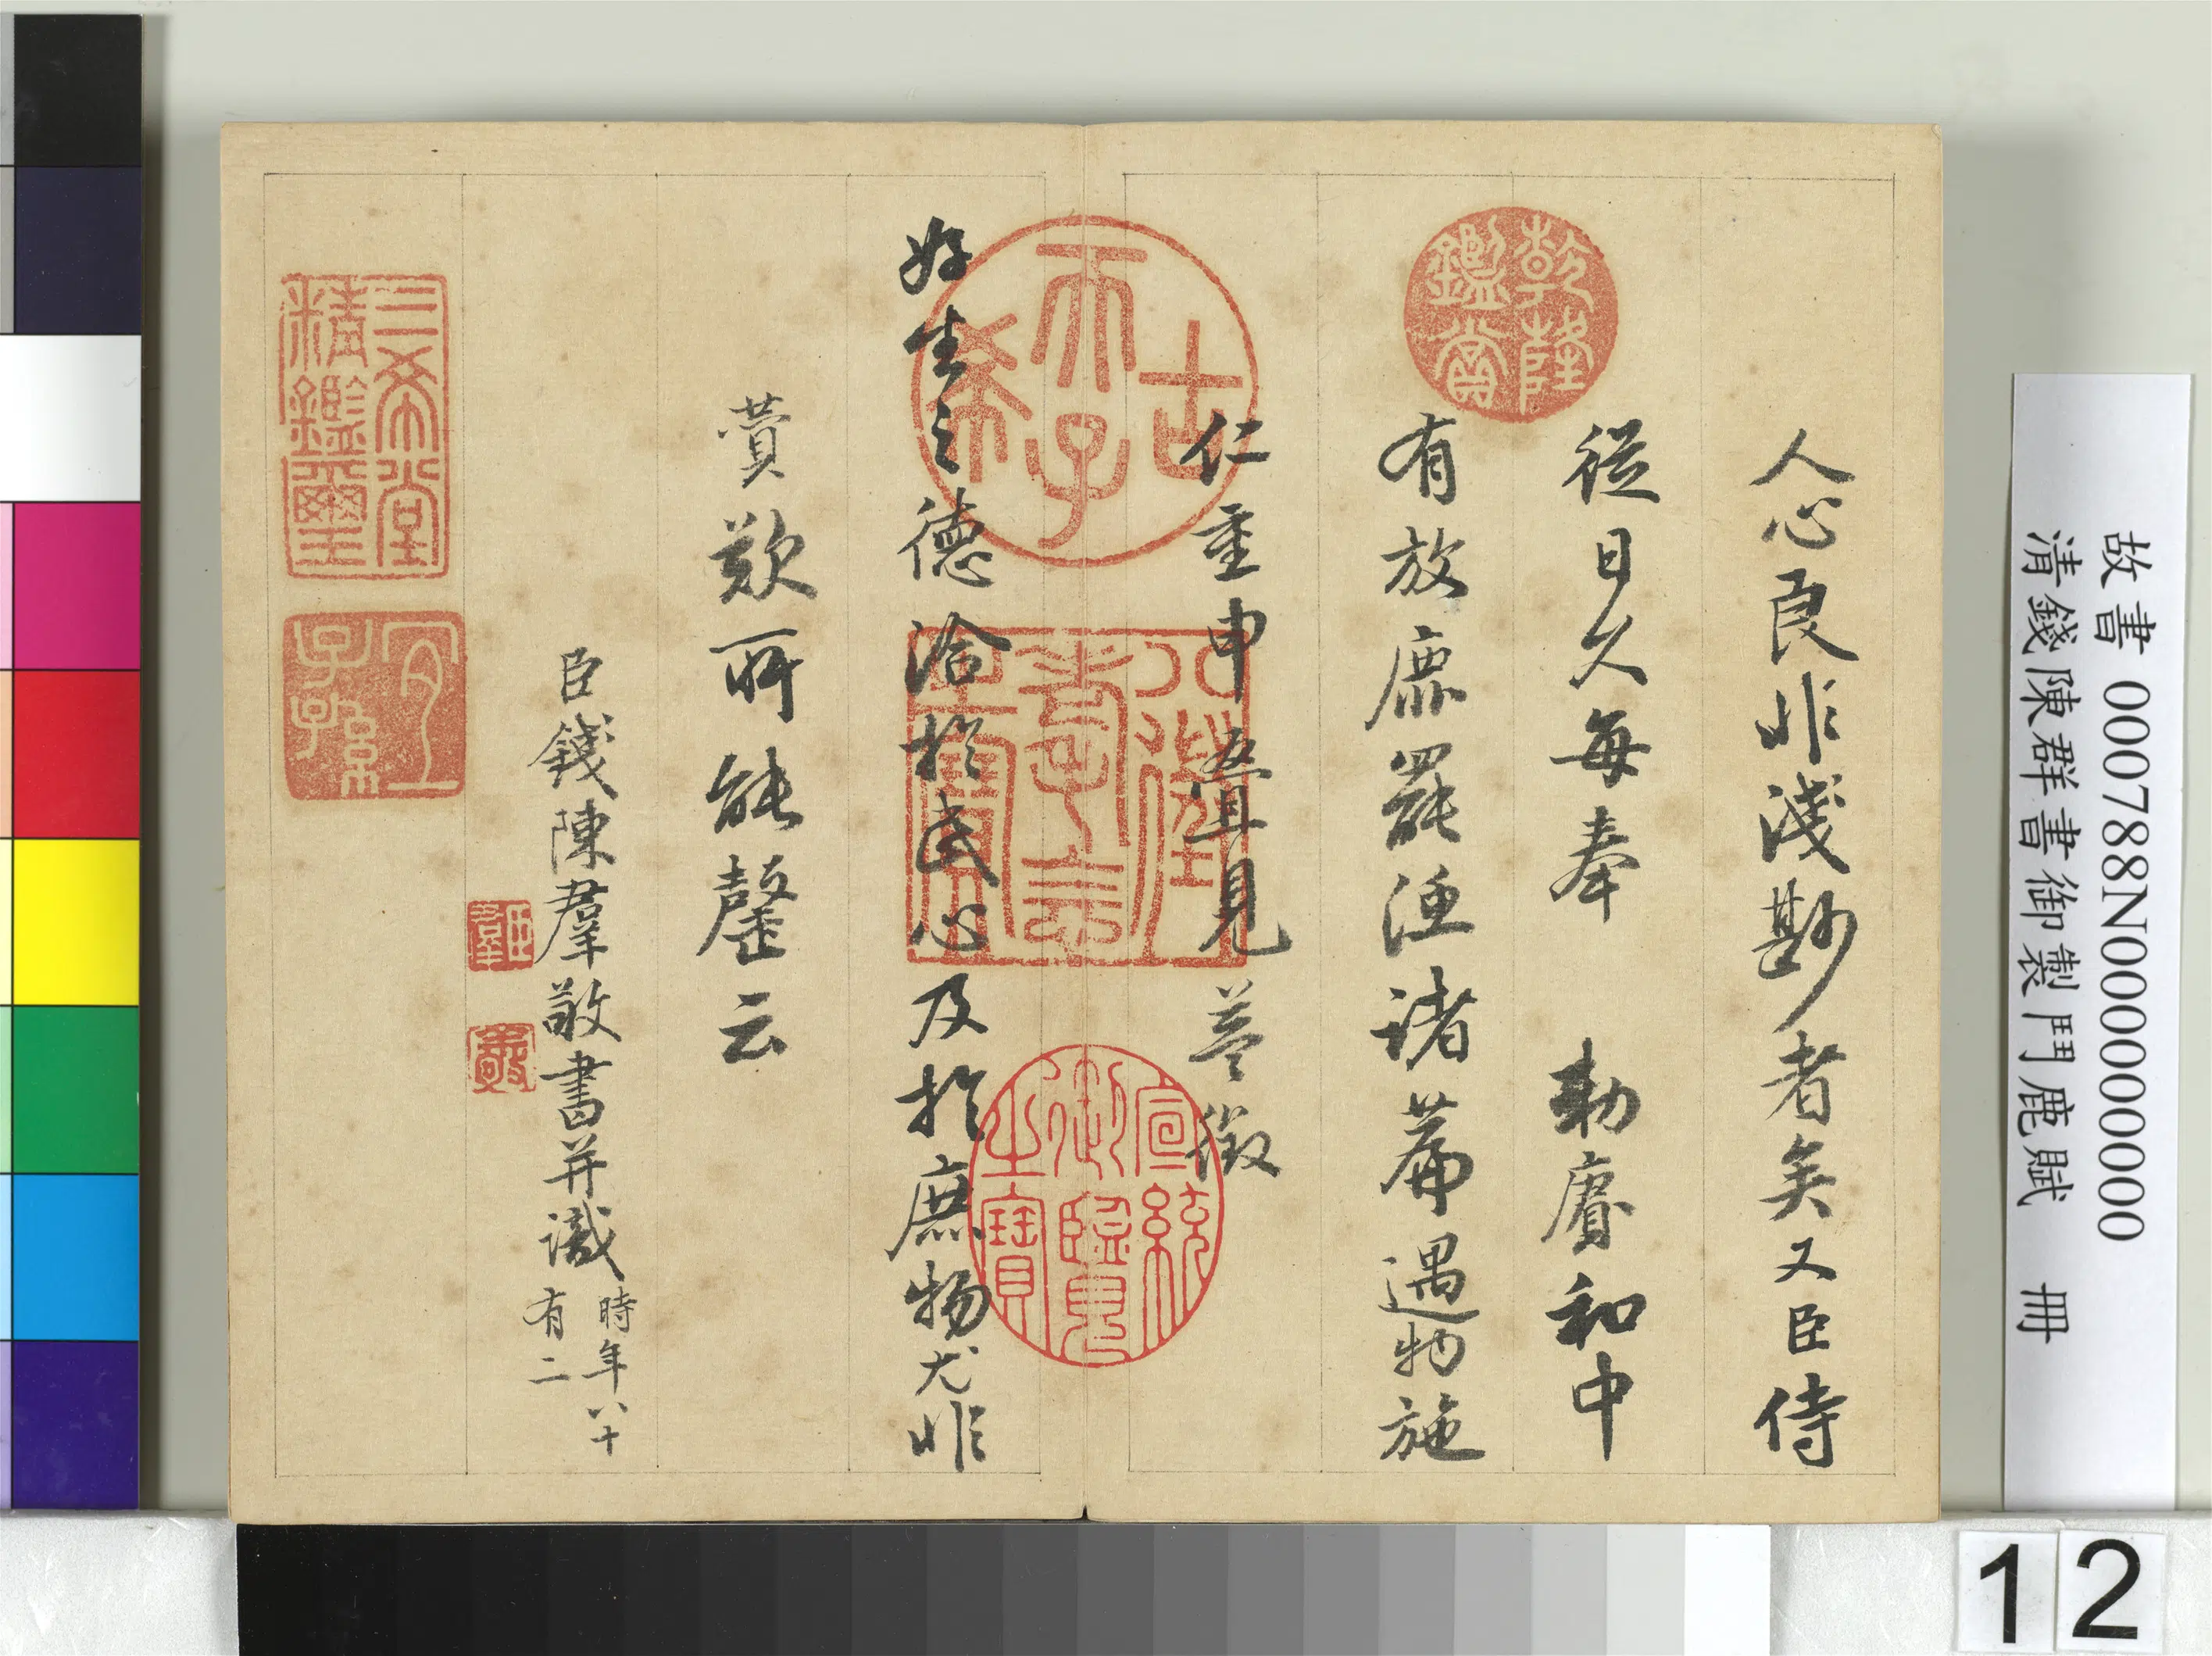 故書 000788N000000000
清錢陳群書御製鬥鹿賦 冊
人心良非淺尠者矣又臣侍
從日久每奉 勅賡和中
有放鹿罷諸篇遇物施
仁重申疊見益徵
好生之德洽於民心及於庶物尤非
贊歎所能罄云
臣錢陳羣敬書并識
時年八十
有二
乾隆鑑賞
古希天子
八徵耄念之寶
宣統御覽之寶
三希堂精鑑璽
宜子孫
臣羣
12